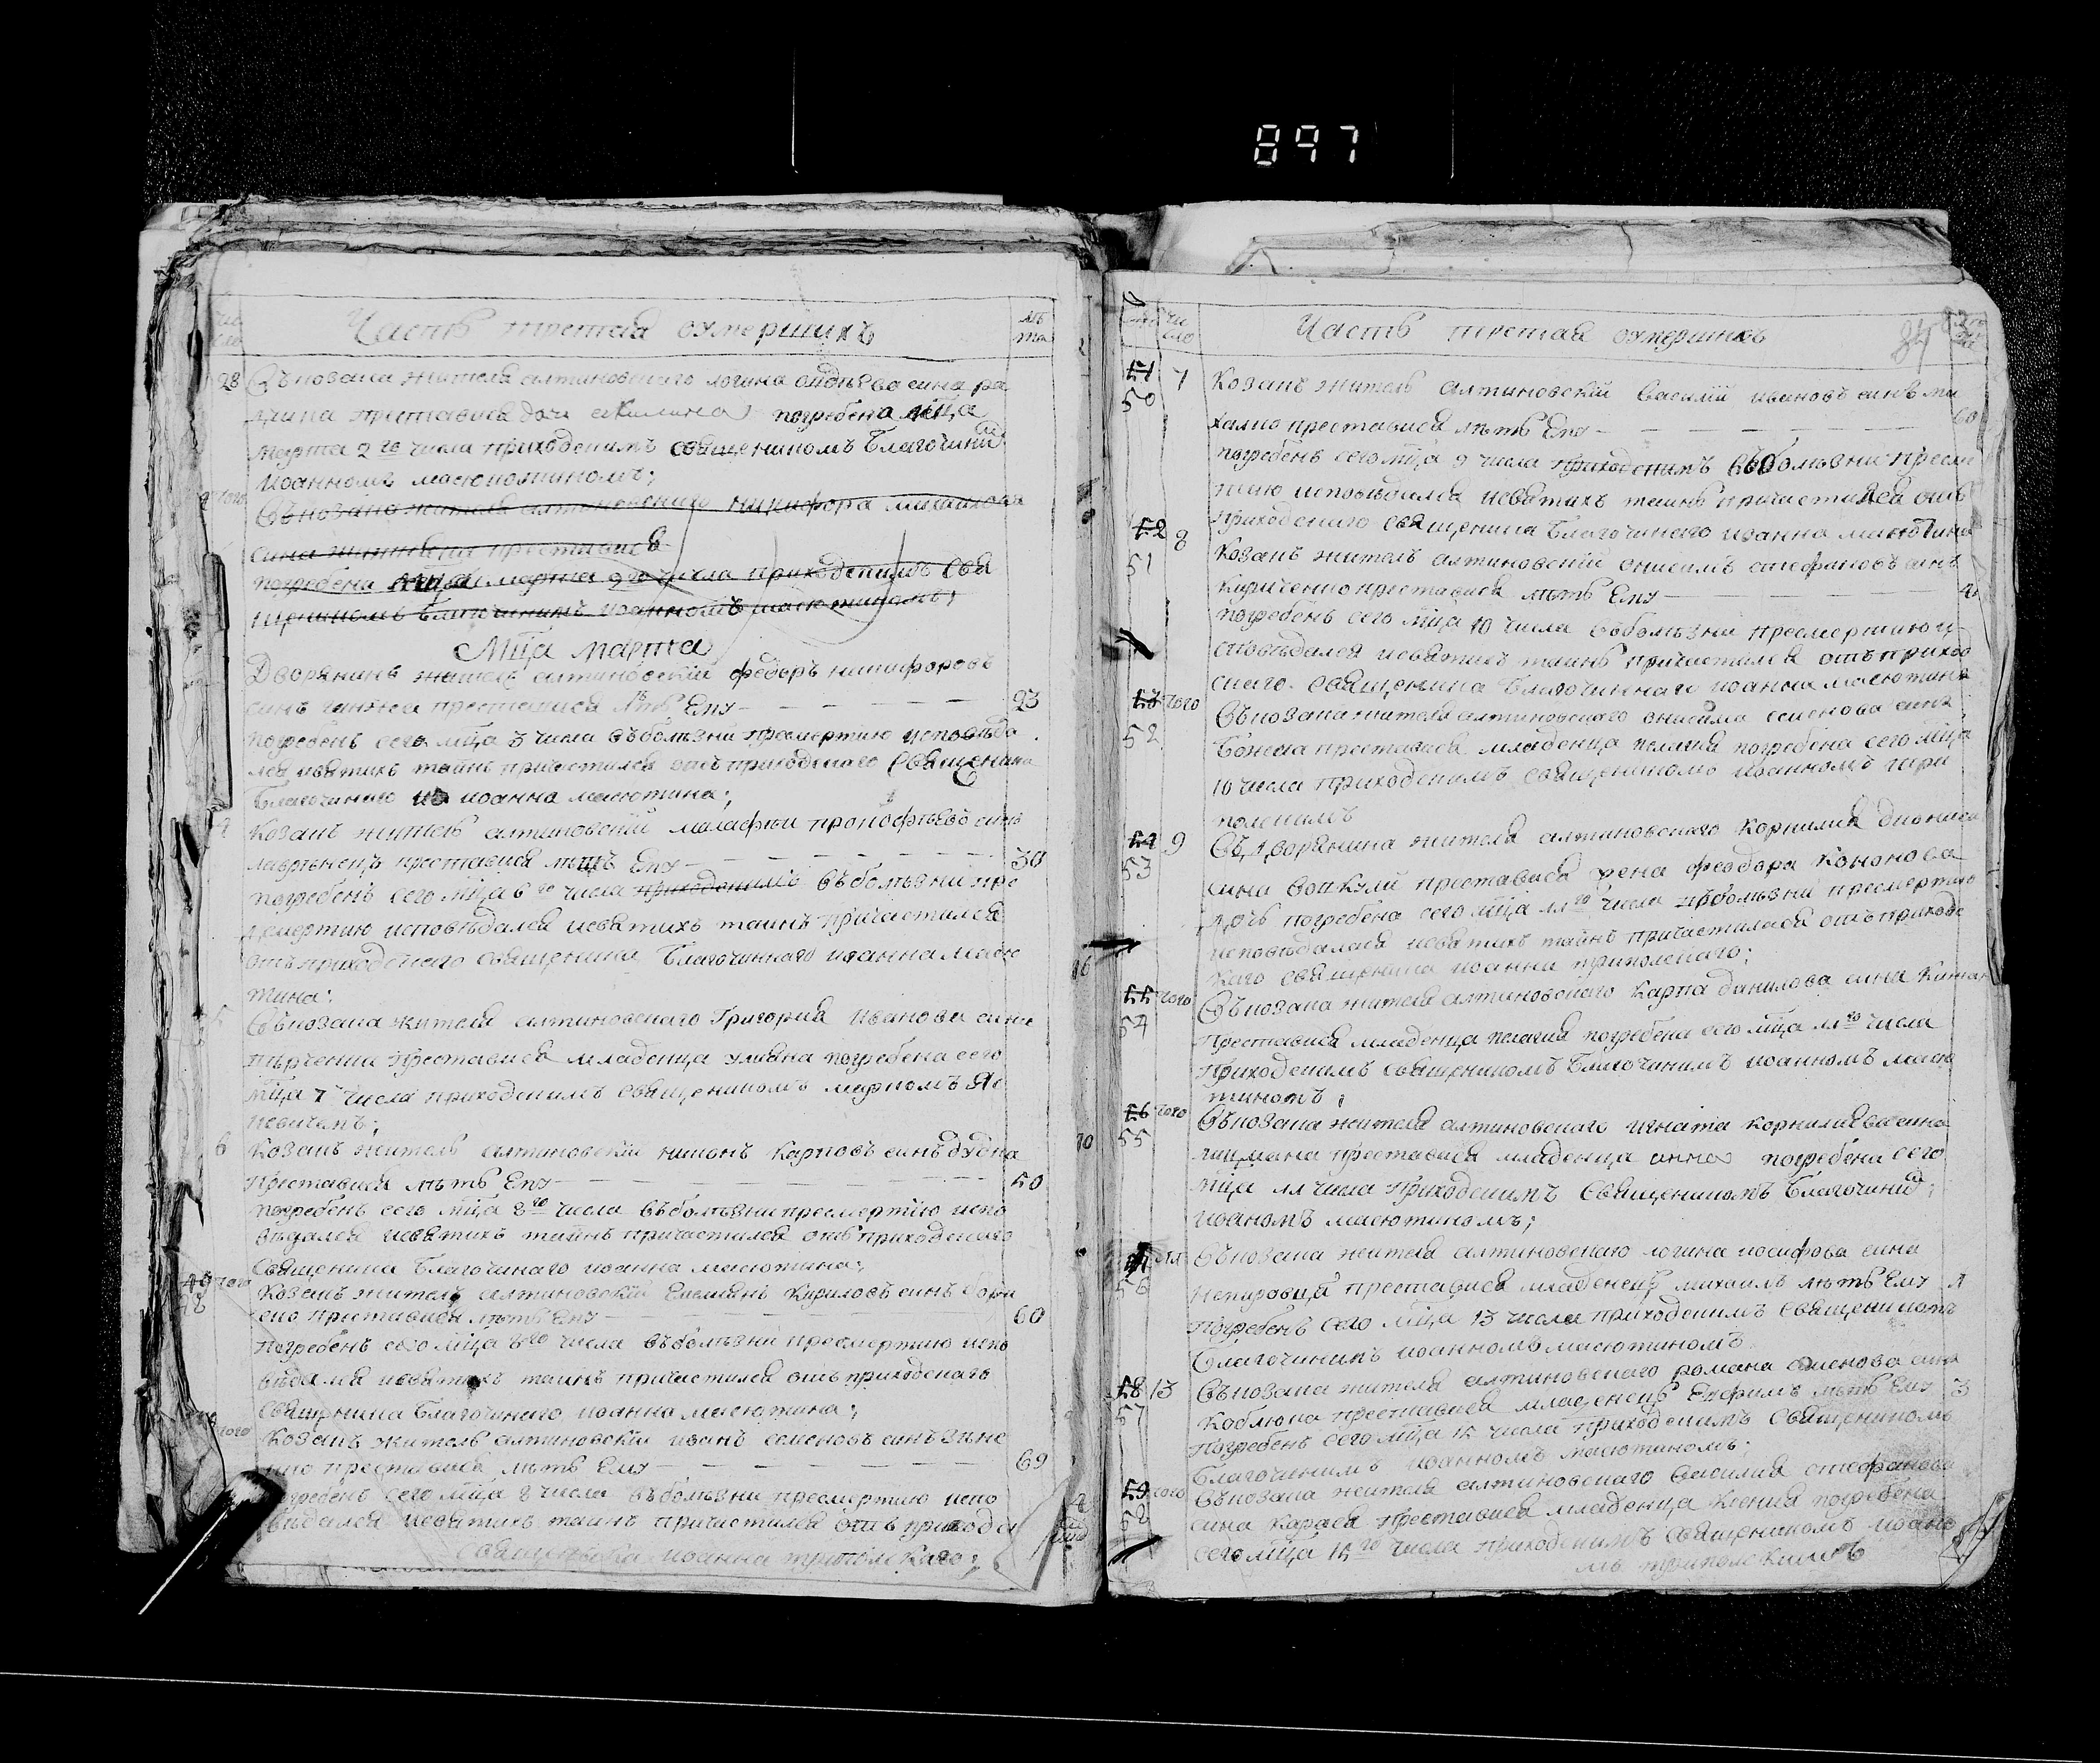 897
Часть третая оумершихъ
лѣ
та
28 Съ козака жителя алтиновского логина
преставися дочь акилина погребена мца
марта 2 го числа приходскимъ священикомъ Благочиній
иоанномъ масютиномъ;
того Съ козака жителя алтиновского никифора
сина преставися
погребена мца марта 2 го числа приходскимъ свя
щеникомъ Благочинимъ иоанномъ масютиномъ;
Мца марта
Дворянинъ житель алтиновскій федоръ никифоровъ
синъ преставися лѣтъ Ему — 23
погребенъ сего мца 3 числа въ болѣзни пресмертию исповѣда
лся исвятихъ таинъ причастился отъ приходского Священика
Благочиного иоанна масютина;
4 Козакъ житель алтиновскій малафѣи прокофѣевъ синъ
преставися лѣтъ Ему — 30
погребенъ сего мца 6 го числа приходскимъ въ болѣзни пре
смертию исповѣдался исвятихъ таинъ причастился
отъ приходского священика Благочинного иоанна масю
тина;
5 Съ козака жителя алтиновского Григория иванова сина
преставися младенца улияна погребена сего
мца 7 числа приходскимъ священикомъ маркомъ

6 Козакъ житель алтиновскій никонъ карповъ синъ дудка
преставися лѣтъ Ему — 50
погребенъ сего мца 8 го числа въ болѣзни пресмертию испо
вѣдался исвятихъ таинъ причастился отъ приходского
священика Благочиного иоанна масютина;
49 того Козакъ житель алтиновскій кириловъ синъ
48 преставися лѣтъ Ему — 60
погребенъ сего мца 8 го числа въ болѣзни пресмертию испо
вѣдался исвятихъ таинъ причастился отъ приходского
священика Благочиного иоанна масютина;
того Козакъ житель алтиновскій иванъ семеновъ синъ
преставися лѣтъ Ему — 69
погребенъ сего мца 8 числа въ болѣзни пресмертию испо
вѣдался исвятихъ таинъ причастился отъ приходск
священика иоанна триполского;
чи
сло
Часть третая оумершихъ
84
51 7 Козакъ житель алтиновскій василій ивановъ синъ ми
50 халко преставися лѣтъ Ему — 60
погребенъ сего мца 9 числа приходскимъ въ болѣзни пресмер
тию исповѣдался исвятихъ таинъ причастился отъ
приходского священика Благочиного иоанна масютина
52 8 Козакъ житель алтиновскій онисимъ стефановъ синъ
51 кириченко преставися лѣтъ Ему —
погребенъ сего мца 10 числа въ болѣзни пресмертию и
сповѣдался исвятихъ таинъ причастился отъ приход
ского священика Благочинного иоанна масютина
53 того Съ козака жителя алтиновского онисима семенова сина
52 преставися младенца пелагия погребена сего мца
10 числа приходскимъ священикомъ иоанномъ три
полскимъ
54 9 Съ дворянина жителя алтиновского корнилия дионисо
53 сина преставися жена феодора кононова
дочь погребена сего мца 11 го числа въ болѣзни пресмертию
исповѣдалася исвятихъ таинъ причастилася отъ приходс
кого священика иоанна триполского;
55 того Съ козака жителя алтиновского карпа данилова сина
54 преставися младенца пелагия погребена сего мца 11 го числа
приходскимъ священикомъ Благочинимъ иоанномъ масю
тиномъ;
56 того Съ козака жителя алтиновского игната корнилиева сина
55 преставися младенца анна погребена сего
мца 11 числа приходскимъ священикомъ Благочиній;
иоаномъ масютиномъ;
11 Съ козака жителя алтиновского логина иосифова сина
56 преставися младенецъ михаилъ лѣтъ Ему 1
погребенъ сего мца 13 числа приходскимъ священикомъ
Благочинимъ иоанномъ масютиномъ
58 13 Съ козака жителя алтиновского романа семенова сина
57 коблюка преставися младенецъ Евфимъ лѣтъ Ему 3
погребенъ сего мца 15 числа приходскимъ священикомъ
Благочинимъ иоанномъ масютиномъ;
59 того Съ козака жителя алтиновского василия стефанова
58 сина карася преставися младенца ксения погребена
сего мца 15 го числа приходскимъ священикомъ иоано
мъ триполскимъ